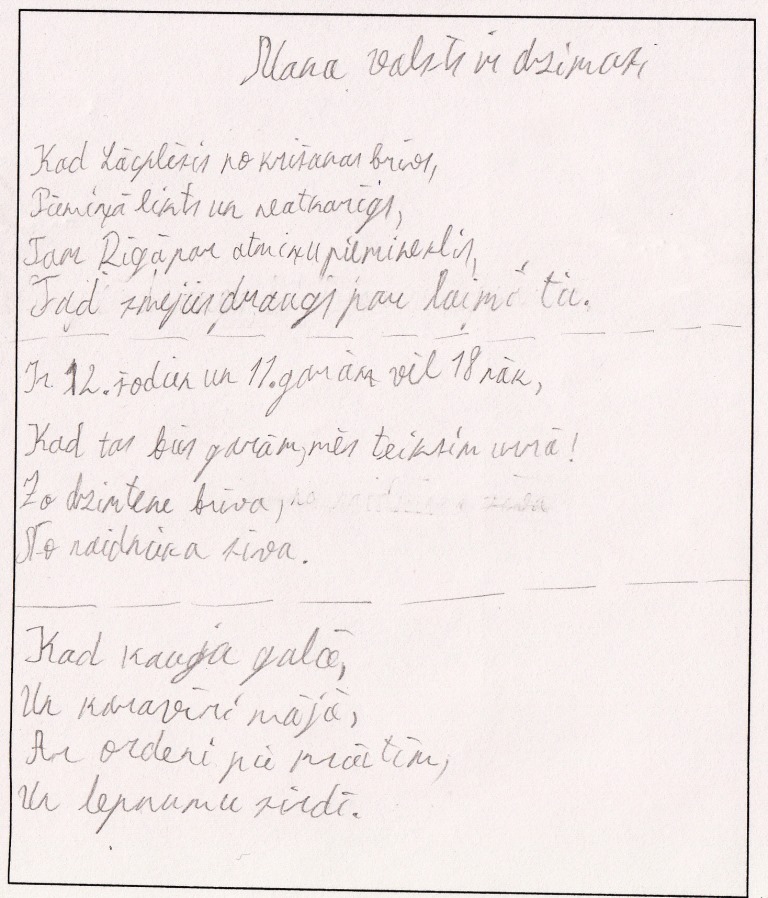 Mana valsts ir dzimusi
Kad Lāčplēsis no krišanas brīvs,
Piemiņā likts un neatkarīgs,
Tam Rīgā par atmiņu piemineklis,
Tad smejies draugs par laimi tu.
Ir 12. šodien un 11. garām vēl 18 nāk,
Kad tas būs garām, mēs teiksim urrā!
Lo dzimtene brīva,
No naidnieka sīva.
Kad kauja galā,
Un karavīri mājā,
Ar ordeni pie krūtīm,
Un lepnumu sirdī.